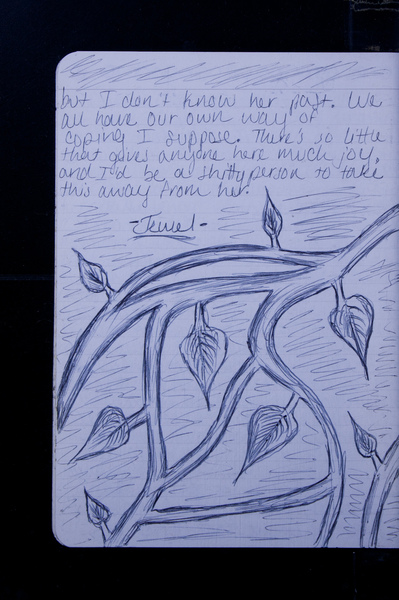 but I don't know her past. We
all have our own way of
coping I suppose. There's so little
that gives anyone here much joy,
and I'd be a shitty person to take
this away from her.
-Jewel-